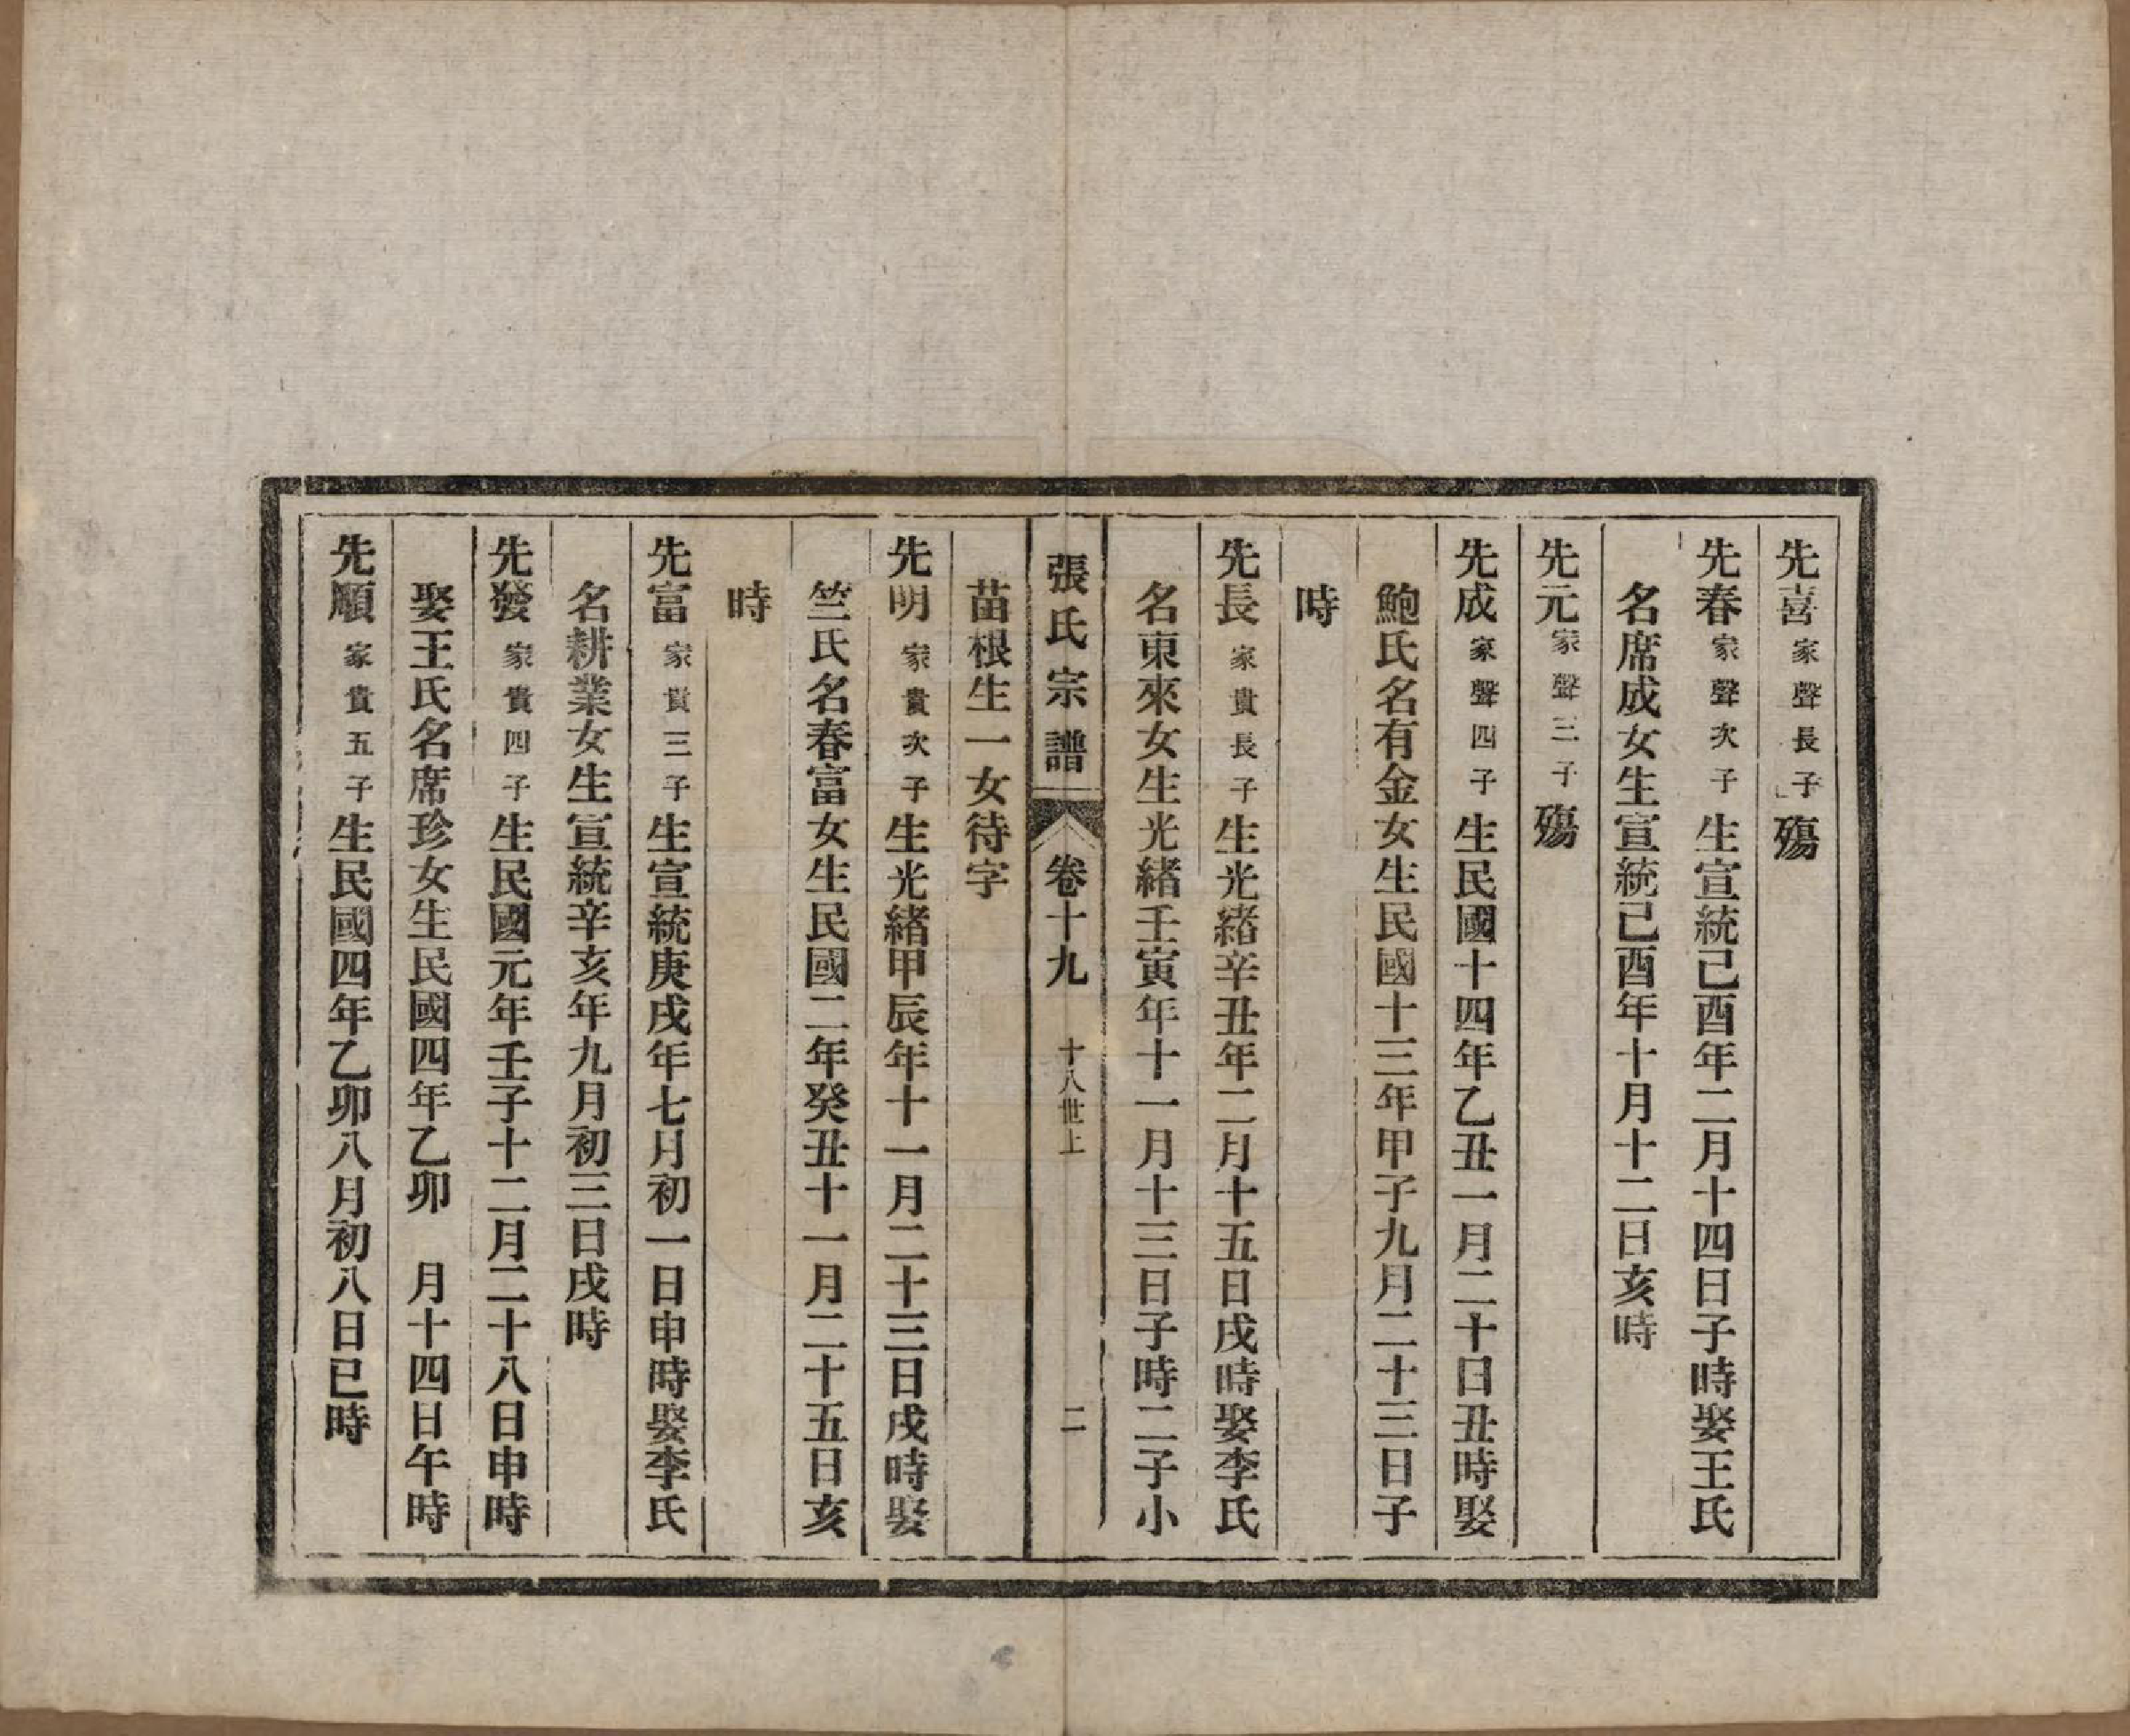 先喜家聲長子殤
先春家聲次子生宣統己酉年二月十四日子時娶王氏
名席成女生宣統己酉年十月十二日亥時
先元家聲三子殤
先成家聲四子生民國十四年乙丑一月二十日丑時娶
鮑氏名有金女生民國十三年甲子九月二十三日子
時
先長家貴長子生光緒辛丑年二月十五日戌時娶李氏
名東來女生光緒壬寅年十一月十三日子時二子小
張氏宗譜 卷十九 十八世上 二
苗根生一女待字
先明家貴次子生光緒甲辰年十一月二十三日戌時娶
竺氏名春富女生民國二年癸丑十一月二十五日亥
時
先富家貴三子生宣統庚戌年七月初一日申時娶李氏
名耕業女生宣統辛亥年九月初三日戌時
先發家貴四子生民國元年壬子十二月二十八日申時
娶王氏名席珍女生民國四年乙卯 月十四日午時
先順家貴五子生民國四年乙卯八月初八日巳時